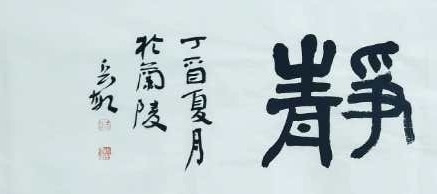 靜
丁酉夏月
於蘭陵